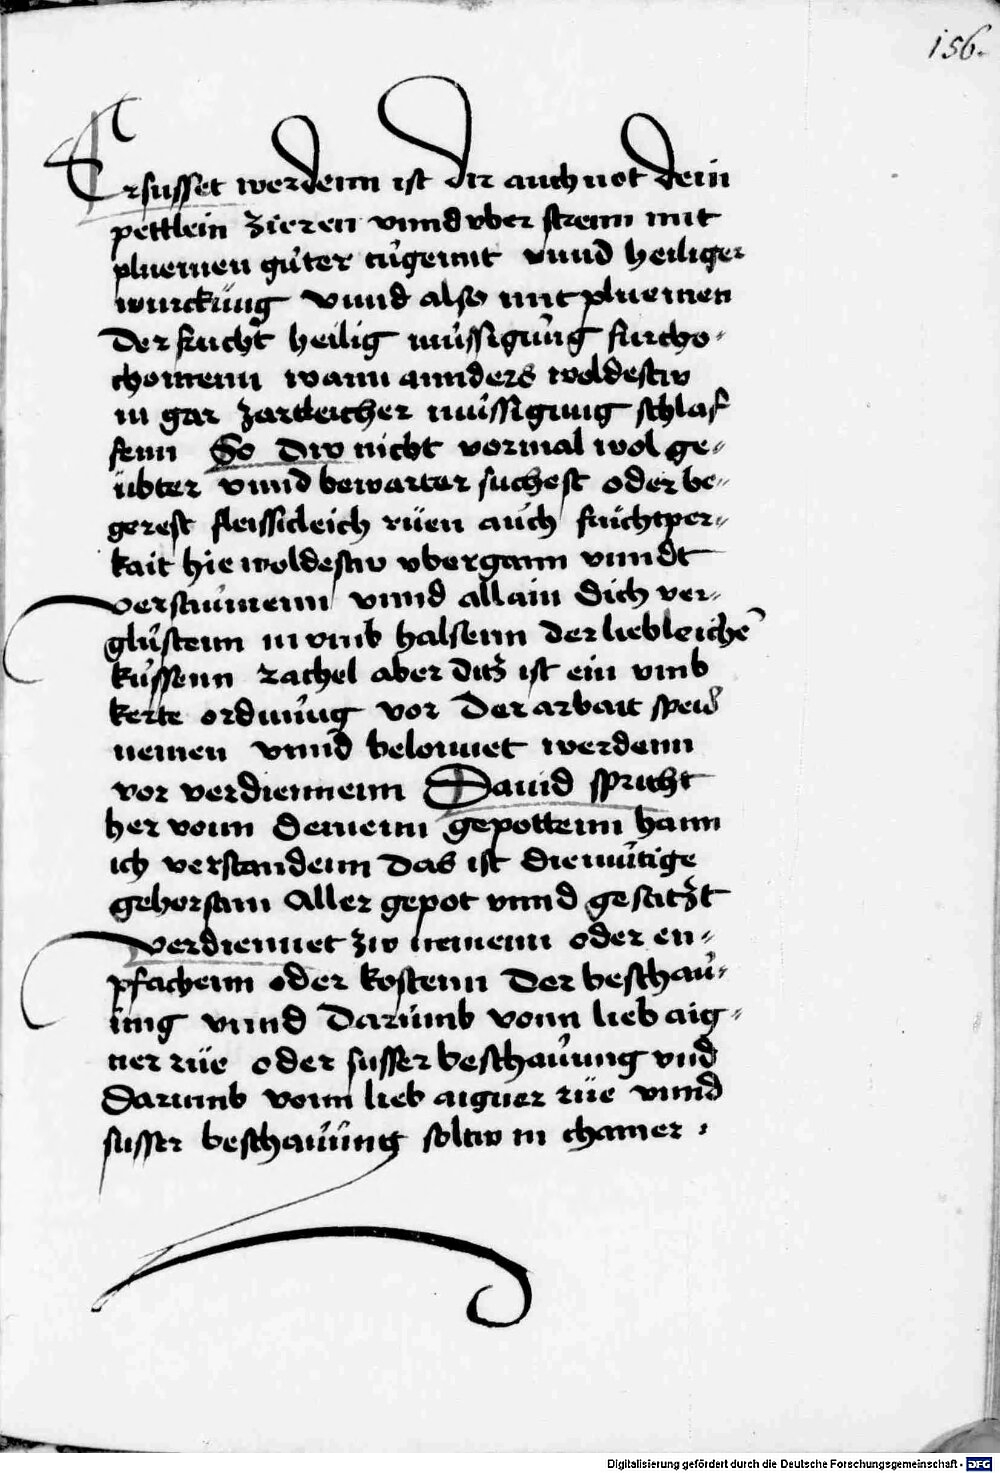 156.
Ersusset werdenn ist dir auch not dein
pettlein zieren vnnd vber strenn mit
pluemen gůter tůgennt vnnd heiliger
wurckůng vnnd also mit pluemen
der frucht heilig můssigůng furcho-
chomenn wann annders woldestw
in gar zartleicher můssigung schlaf
fenn So dw nicht vormal wol ge-
übter vnnd bewarter suchest oder be-
gerest fleissicleich rüen auch früchtper-
kait hie woldestw vbergann vnndt
versaumenn vnnd allain dich ver-
glůstenn in vmb halsenn der liebleichē
kůssenn rachel aber ditz ist ein vmb
kerte ordnůng vor der arbait speis
nemen vnnd belonnet werdenn
vor verdiennenn Dauid spricht
her vonn deinenn gepottenn hann
ich verstandenn das ist diemůtige
gehorsam Aller gepot vnnd gesatzt
verdiennet zw nemenn oder en-
pfachenn oder kostenn der beschaů-
ung vnnd darůmb vonn lieb aig-
ner rüe oder susser beschaůung vnd
darumb vonn lieb aigner rüe vnnd
susser beschaůůng soltw in chainer
Digitalisierung gefördert durch die Deutsche Forschungsgemeinschaft - DFG